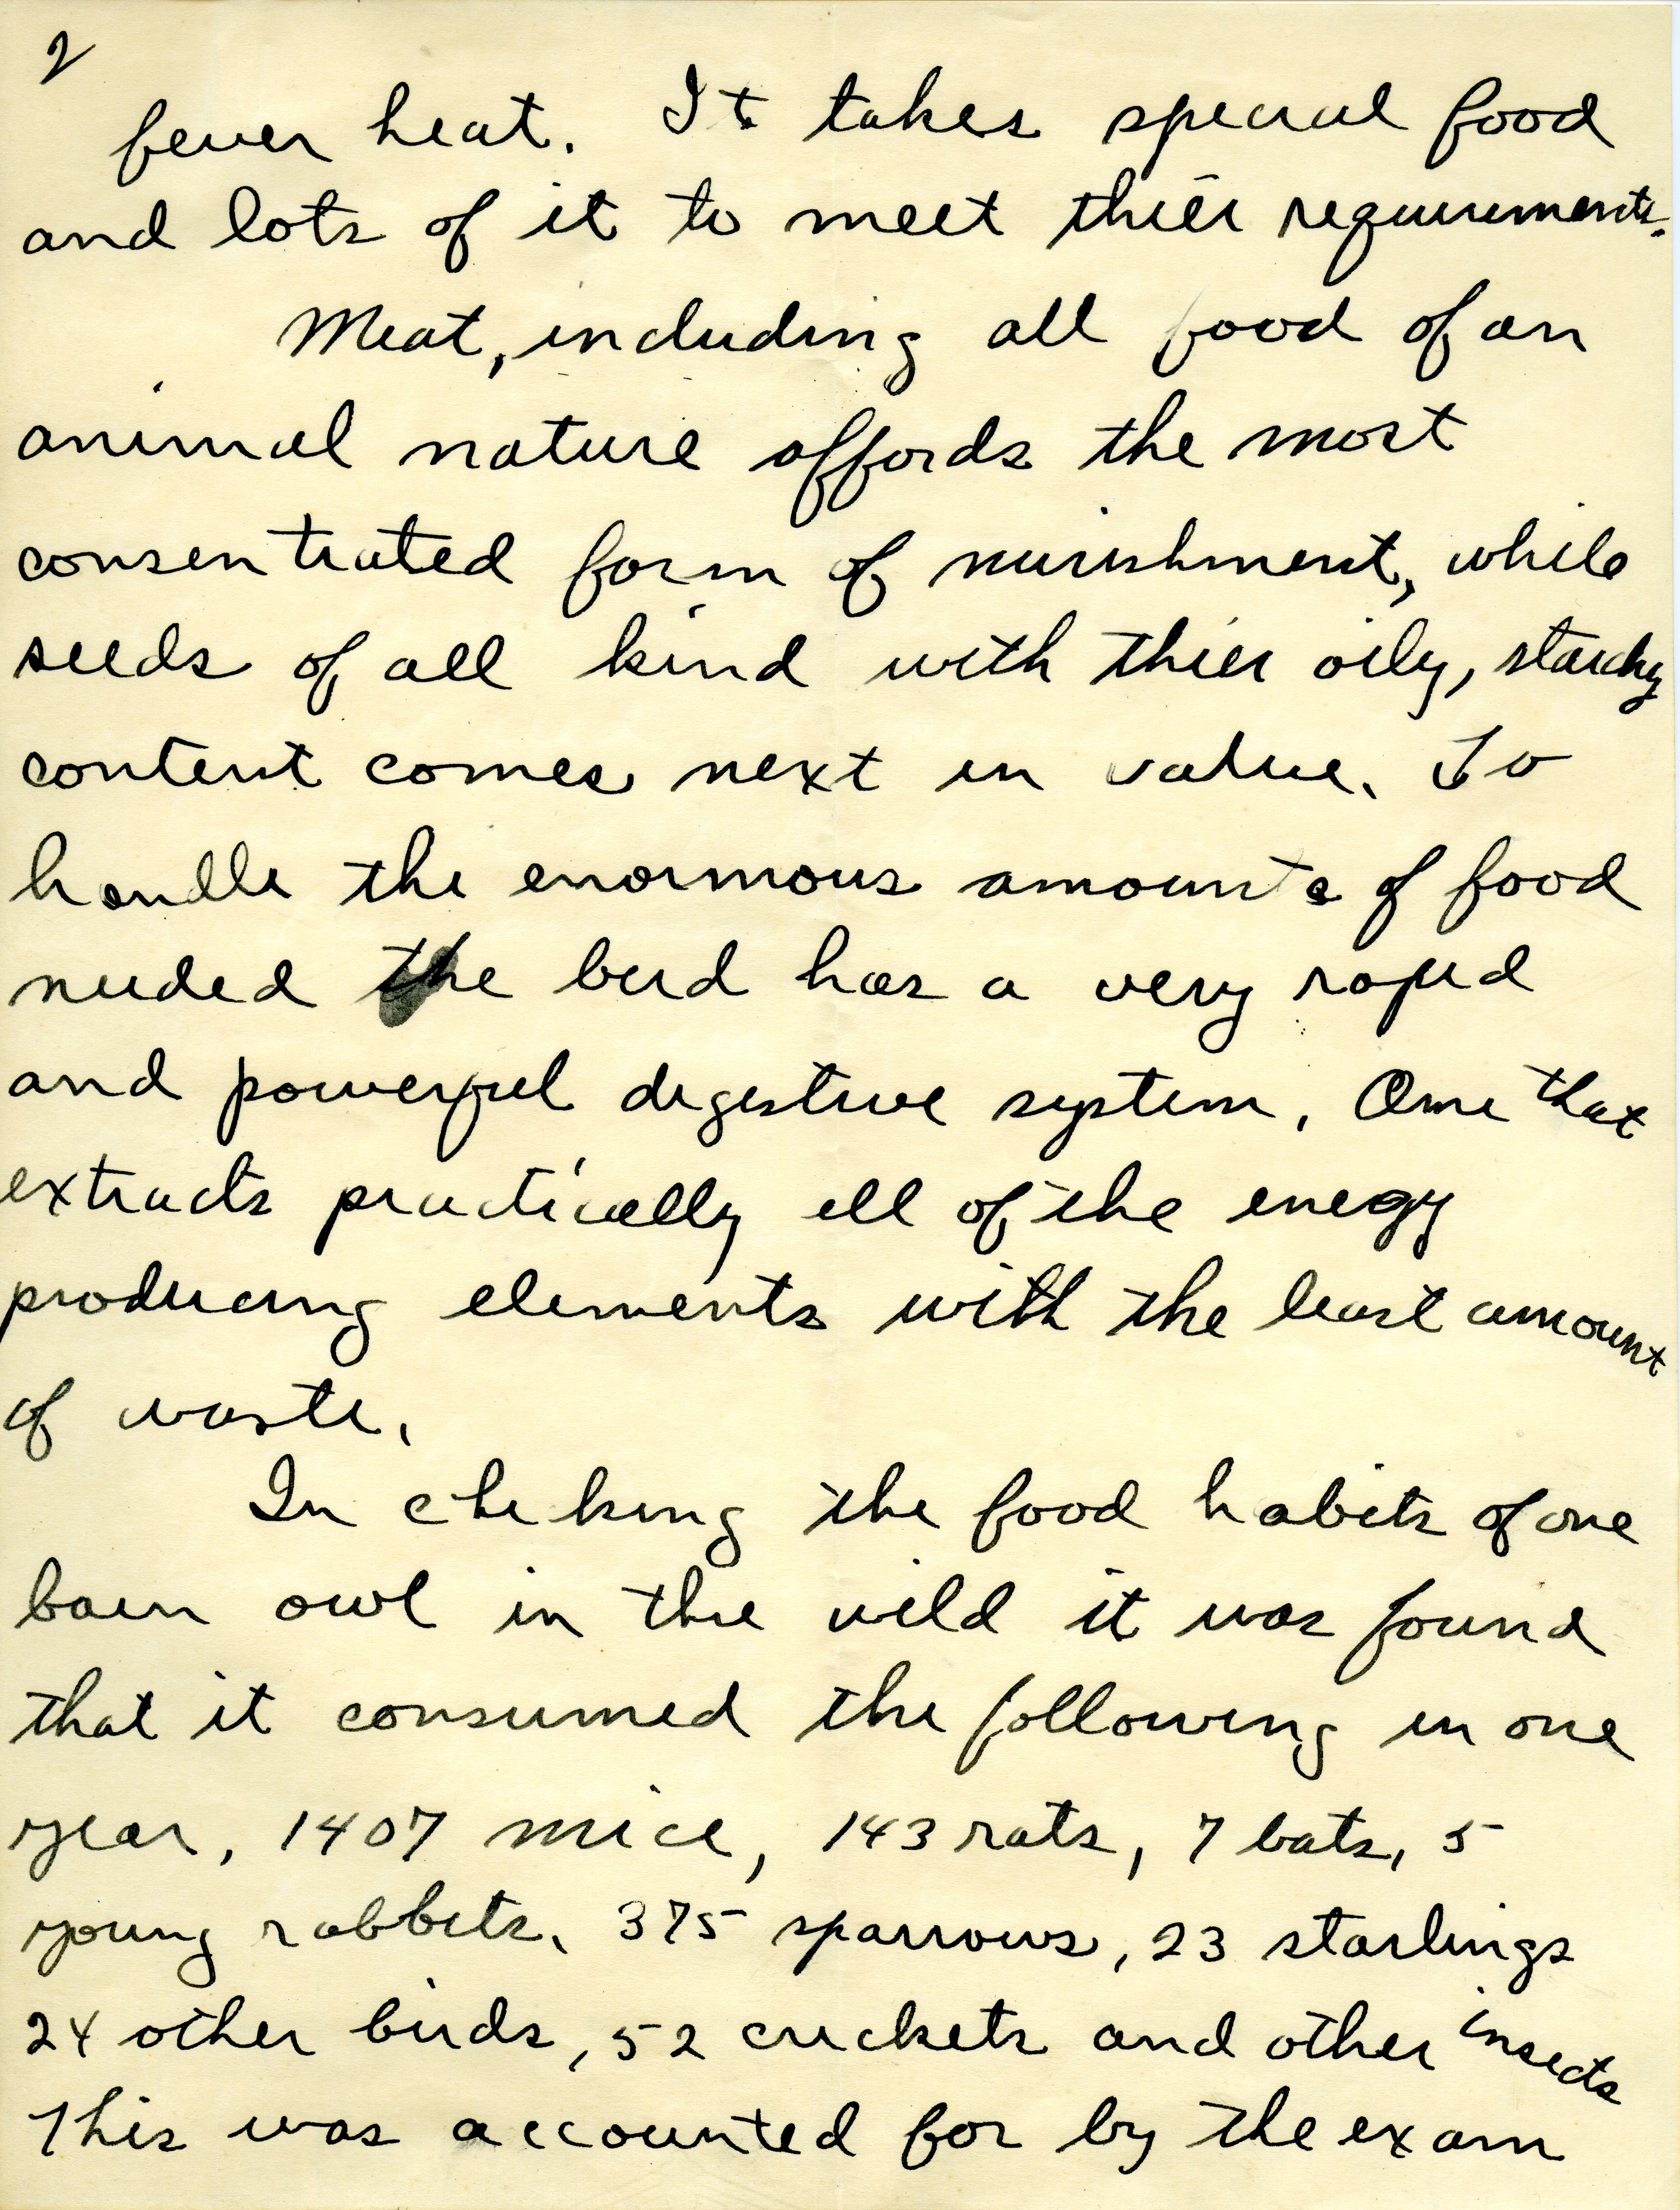 2
fever heat. It takes special food
and lots of it to meet thier requirements.
Meat, including all food of an
animal nature affords the most
consentrated form of nurishment, while
seeds of all kind with thier oily, starchy
content comes next in value. To
handle the enormous amounts of food
needed the bird has a very rapid
and powerful digestive system. One that
extracts practically all of the enegy
producing elements with the least amount
of waste.
In cheking the food habits of one
barn owl in the wild it was found
that it consumed the following in one
year, 1407 mice, 143 rats, 7 bats, 5
young rabbits, 375 sparrows, 23 starlings
24 other birds, 52 crickets and other insects
This was accounted for by the exam